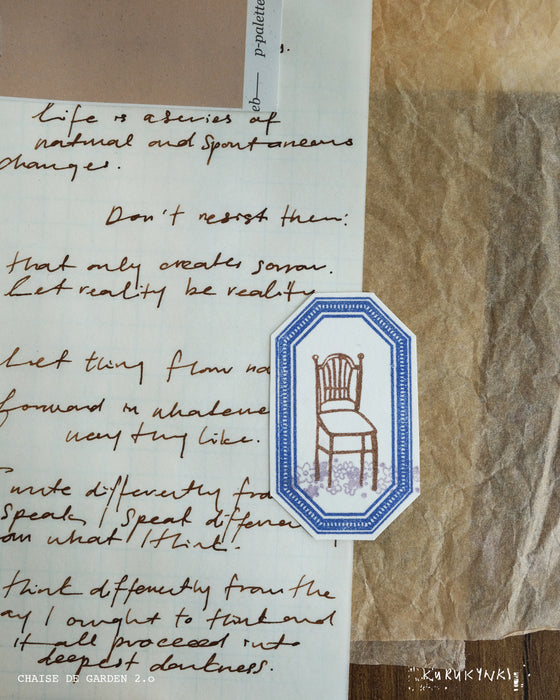 p-palette
eb
Life is a series of
natural and spontaneous
changes.
Don't resist them:
that only creates sorrow.
Let reality be reality
Let thing flow na
forward in whateve
way they like.
I write differently fro
Speak, I Speak differen
om what I think.
think differently from the
ay I ought to think and
it all proceed into
deepest darkness.
CHAISE DE GARDEN 2.0
KURUKYNKI